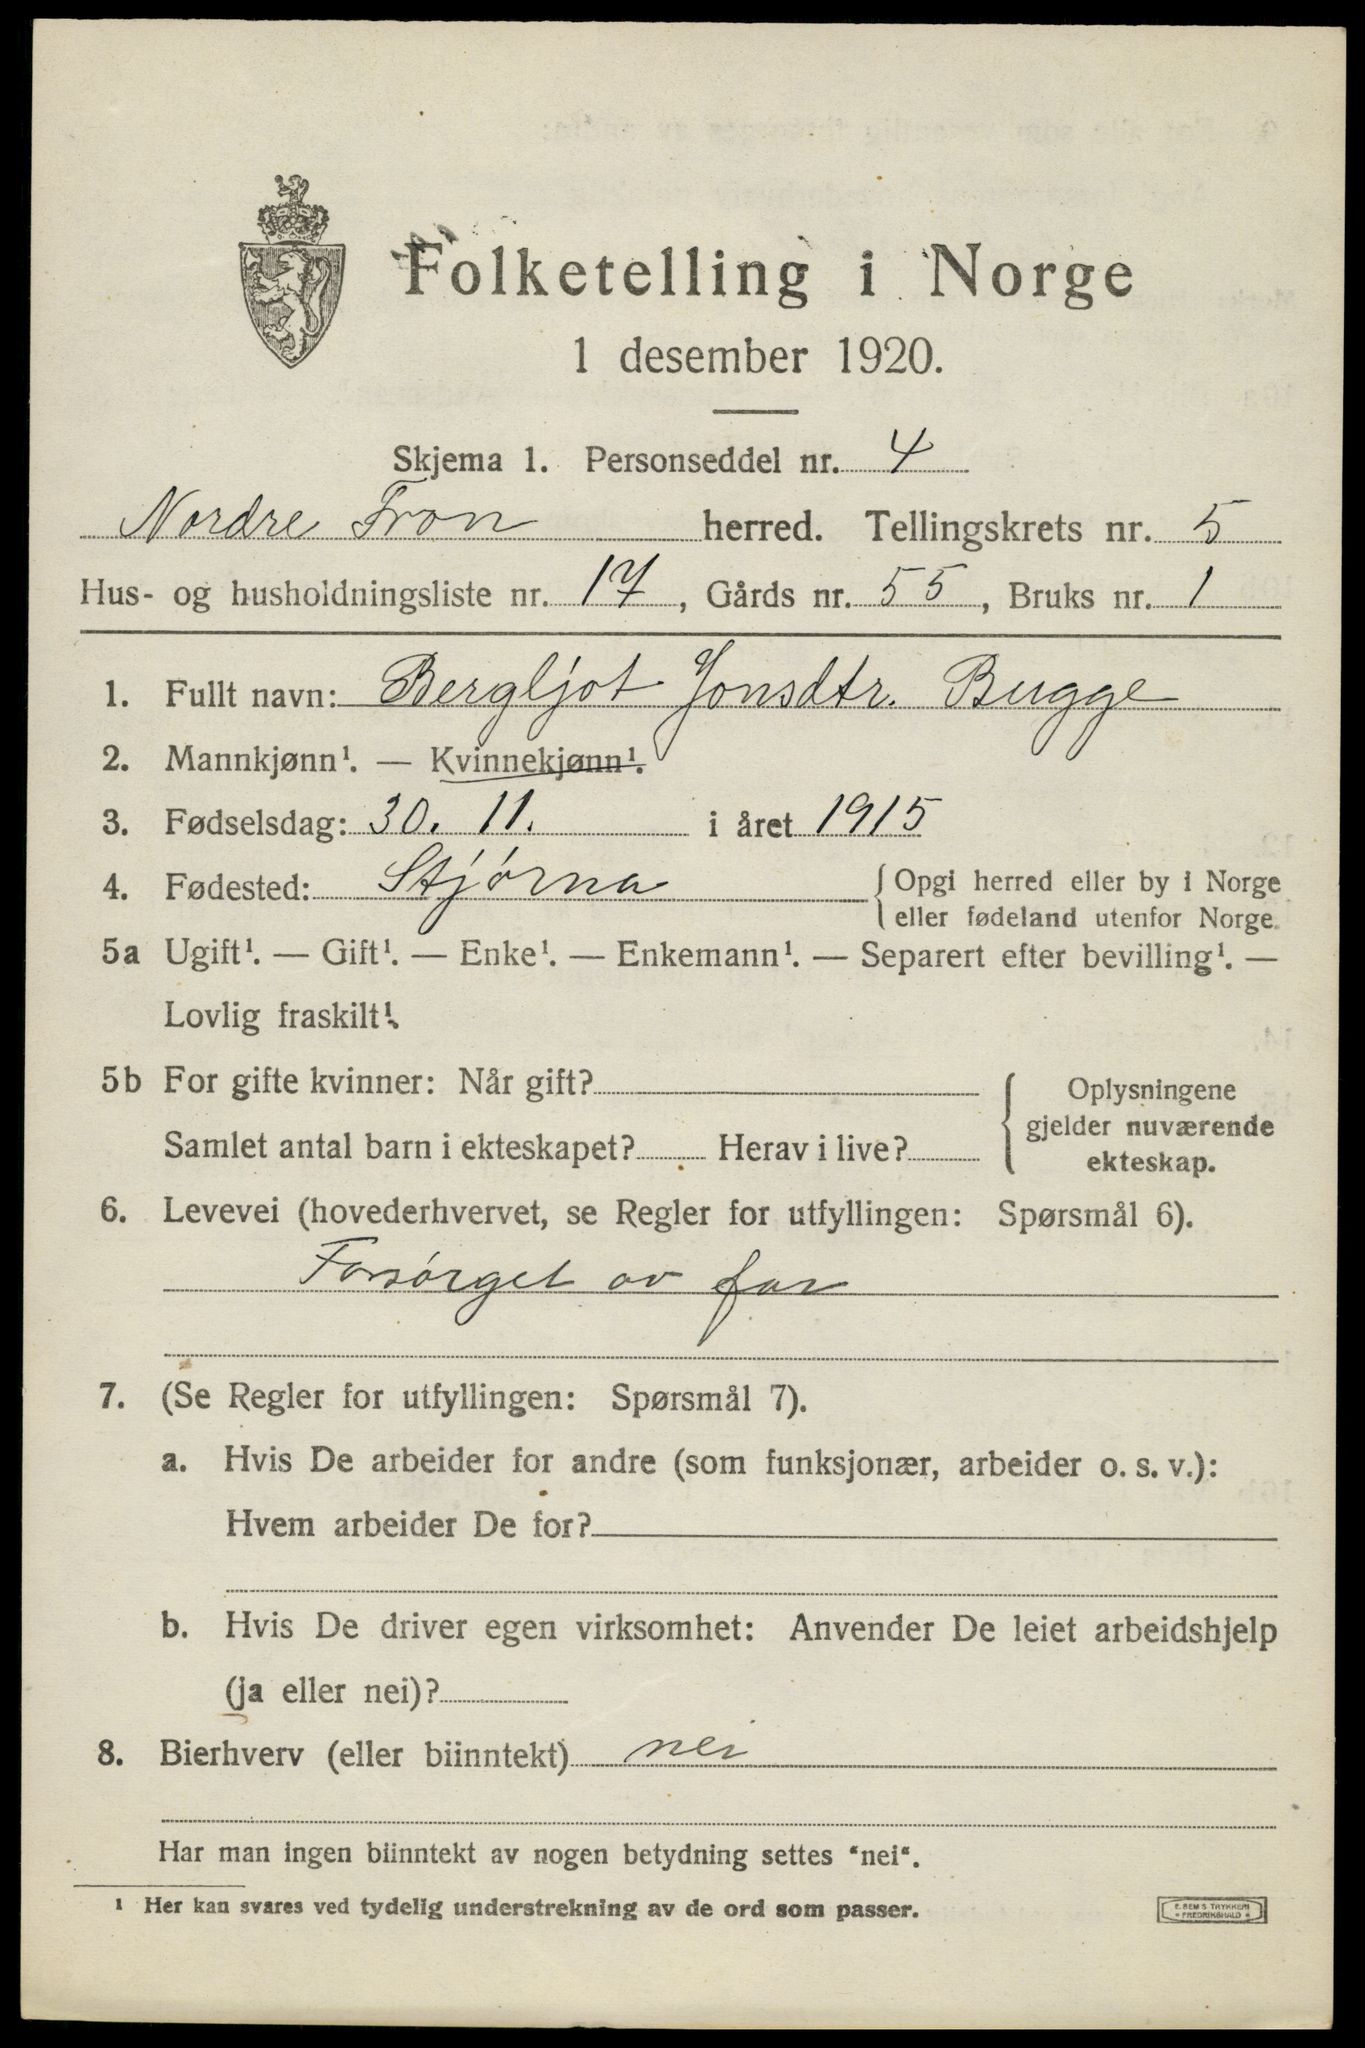 Folketelling i Norge
1 desember 1920.
Skjema 1. Personseddel nr. 4
Nordre Fron herred. Tellingskrets nr. 5
Hus- og husholdningsliste nr. 17, Gårds nr. 55, Bruks nr. 1
1. Fullt navn: Bergljot Jonsdtr. Bugge
2. Mannkjønn¹. — Kvinnekjønn¹.
3. Fødselsdag: 30. 11. i året 1915
4. Fødested: Stjørna { Opgi herred eller by i Norge
eller fødeland utenfor Norge.
5a Ugift¹. — Gift¹. — Enke¹. — Enkemann¹. — Separert efter bevilling¹. —
Lovlig fraskilt¹.
5b For gifte kvinner: Når gift?
Samlet antal barn i ekteskapet? Herav i live?
{ Oplysningene
gjelder nuværende
ekteskap.
6. Levevei (hovederhvervet, se Regler for utfyllingen: Spørsmål 6).
Forsørget av far
7. (Se Regler for utfyllingen: Spørsmål 7).
a. Hvis De arbeider for andre (som funksjonær, arbeider o. s. v.):
Hvem arbeider De for?
b. Hvis De driver egen virksomhet: Anvender De leiet arbeidshjelp
(ja eller nei)?
8. Bierhverv (eller biinntekt) nei
Har man ingen biinntekt av nogen betydning settes "nei".
¹ Her kan svares ved tydelig understrekning av de ord som passer.
E. SEM'S TRYKKERI
* FREDRIKSHALD *